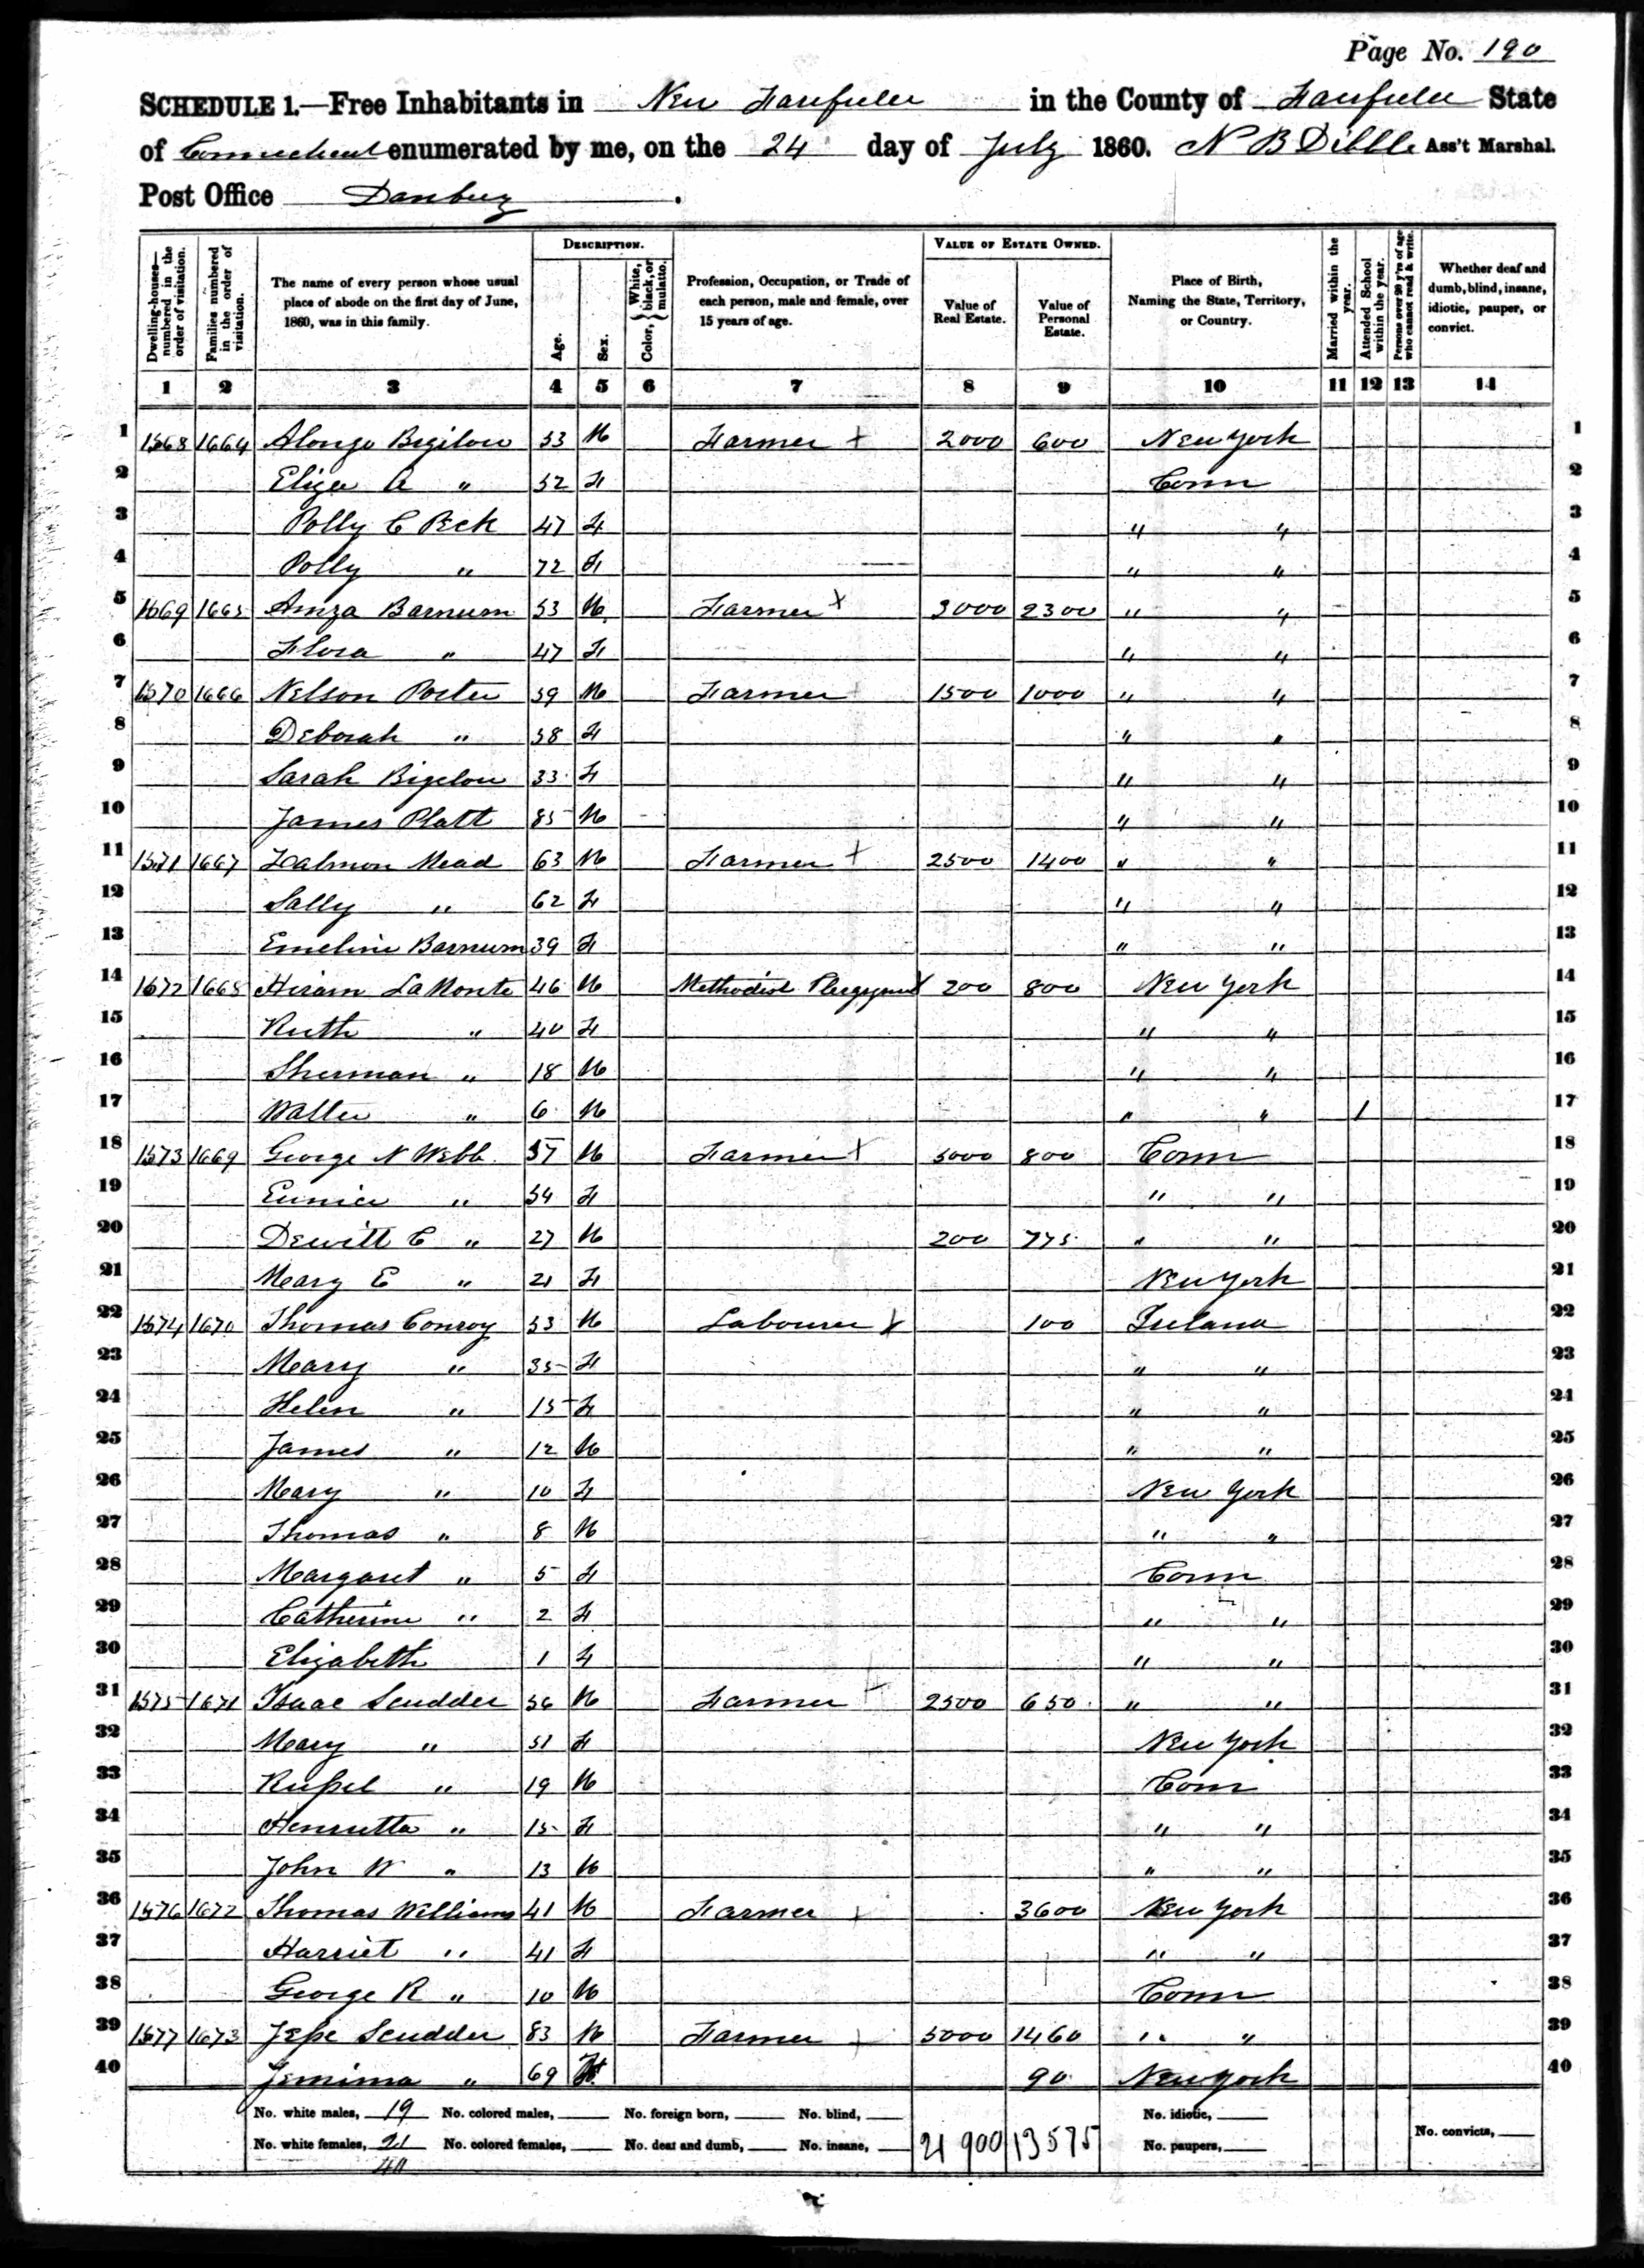 Page No. 190
SCHEDULE 1.—Free Inhabitants in New Fairfield in the County of Fairfield State
of Connecticut enumerated by me, on the 24 day of July 1860. N B Dibble Ass't Marshal.
Post Office Danbury.
DESCRIPTION. VALUE OF ESTATE OWNED.
Dwelling-houses—numbered in the order of visitation. Families numbered in the order of visitation. The name of every person whose usual place of abode on the first day of June, 1860, was in this family. Age. Sex. Color, {White, black, or mulatto. Profession, Occupation, or Trade of each person, male and female, over 15 years of age. Value of Real Estate. Value of Personal Estate. Place of Birth, Naming the State, Territory, or Country. Married within the year. Attended School within the year. Persons over 20 y'rs of age who cannot read & write. Whether deaf and dumb, blind, insane, idiotic, pauper, or convict.
1 2 3 4 5 6 7 8 9 10 11 12 13 14
1 1568 1664 Alonzo Bigilow 53 M Farmer + 2000 600 New York 1
2 Eliza A " 52 F Conn 2
3 Polly C Peck 47 F " " 3
4 Polly " 72 F " " 4
5 1569 1665 Amza Barnum 53 M Farmer X 3000 2300 " " 5
6 Flora " 47 F " " 6
7 1570 1666 Nelson Porter 59 M Farmer + 1500 1000 " " 7
8 Deborah " 58 F " " 8
9 Sarah Bigelow 33 F " " 9
10 James Platt 85 M " " 10
11 1571 1667 Zalmon Mead 63 M Farmer + 2500 1400 " " 11
12 Sally " 62 F " " 12
13 Emeline Barnum 39 F " " 13
14 1572 1668 Hiram LaMonte 46 M Methodist Clergyman X 200 800 New York 14
15 Ruth " 40 F " " 15
16 Sherman " 18 M " " 16
17 Walter " 6 M " " 1 17
18 1573 1669 George N Webb 57 M Farmer X 5000 800 Conn 18
19 Eunice " 54 F " " 19
20 Dewitt C " 27 M 200 775 " " 20
21 Mary E " 21 F New York 21
22 1574 1670 Thomas Conroy 53 M Labourer X 100 Ireland 22
23 Mary " 35 F " " 23
24 Helen " 15 F " " 24
25 James " 12 M " " 25
26 Mary " 10 F New York 26
27 Thomas " 8 M " " 27
28 Margaret " 5 F Conn 28
29 Catherine " 2 F " " 29
30 Elizabeth 1 F " " 30
31 1575 1671 Isaac Scudder 56 M Farmer + 2500 650 " " 31
32 Mary " 51 F New York 32
33 Russel " 19 M Conn 33
34 Henrietta " 15 F " " 34
35 John W " 13 M " " 35
36 1576 1672 Thomas Williams 41 M Farmer + 3600 New York 36
37 Harriet " 41 F " " 37
38 George R " 10 M Conn 38
39 1577 1673 Jesse Scudder 83 M Farmer + 5000 1460 " " 39
40 Jemima " 69 F 90 New York 40
No. white males, 19 No. colored males, No. foreign born, No. blind, No. idiotic,
No. white females, 21 No. colored females, No. deaf and dumb, No. insane, 21900 13575 No. paupers, No. convicts,
40